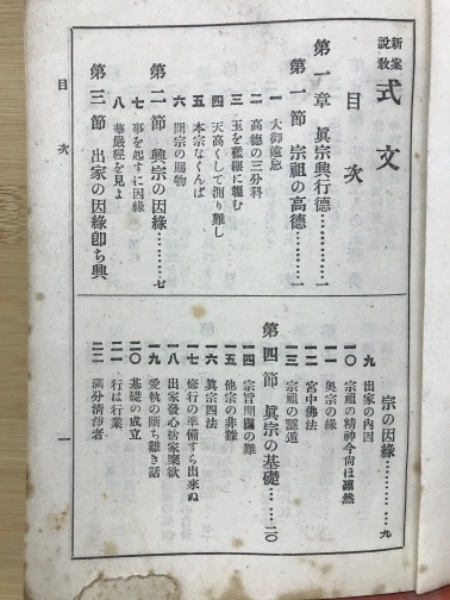 新案
説教
式文
目次
第一章 眞宗興行德…………一
第一節 宗祖の高德…………一
一 大御遠忌
二 高德の三分科
三 玉を襤褸に包む
四 天高くして測り難し
五 本宗なくんば
六 開宗の賜物
第二節 興宗の因緣…………七
七 事を起すに因緣
八 華嚴經を見よ
第三節 出家の因緣卽ち興
宗の因緣…………九
九 出家の內因
一〇 宗祖の精神今尙ほ凛然
一一 奥宗の緣
一二 宮中佛法
一三 宗祖の隱遁
第四節 眞宗の基礎……二〇
一四 宗旨開闢の難
一五 他宗の非難
一六 眞宗四法
一七 修行の準備すら出來ぬ
一八 出家發心捨家棄欲
一九 愛執の斷ち難き話
二〇 基礎の成立
二一 行は行業
二二 滿分淸淨者
目次
一